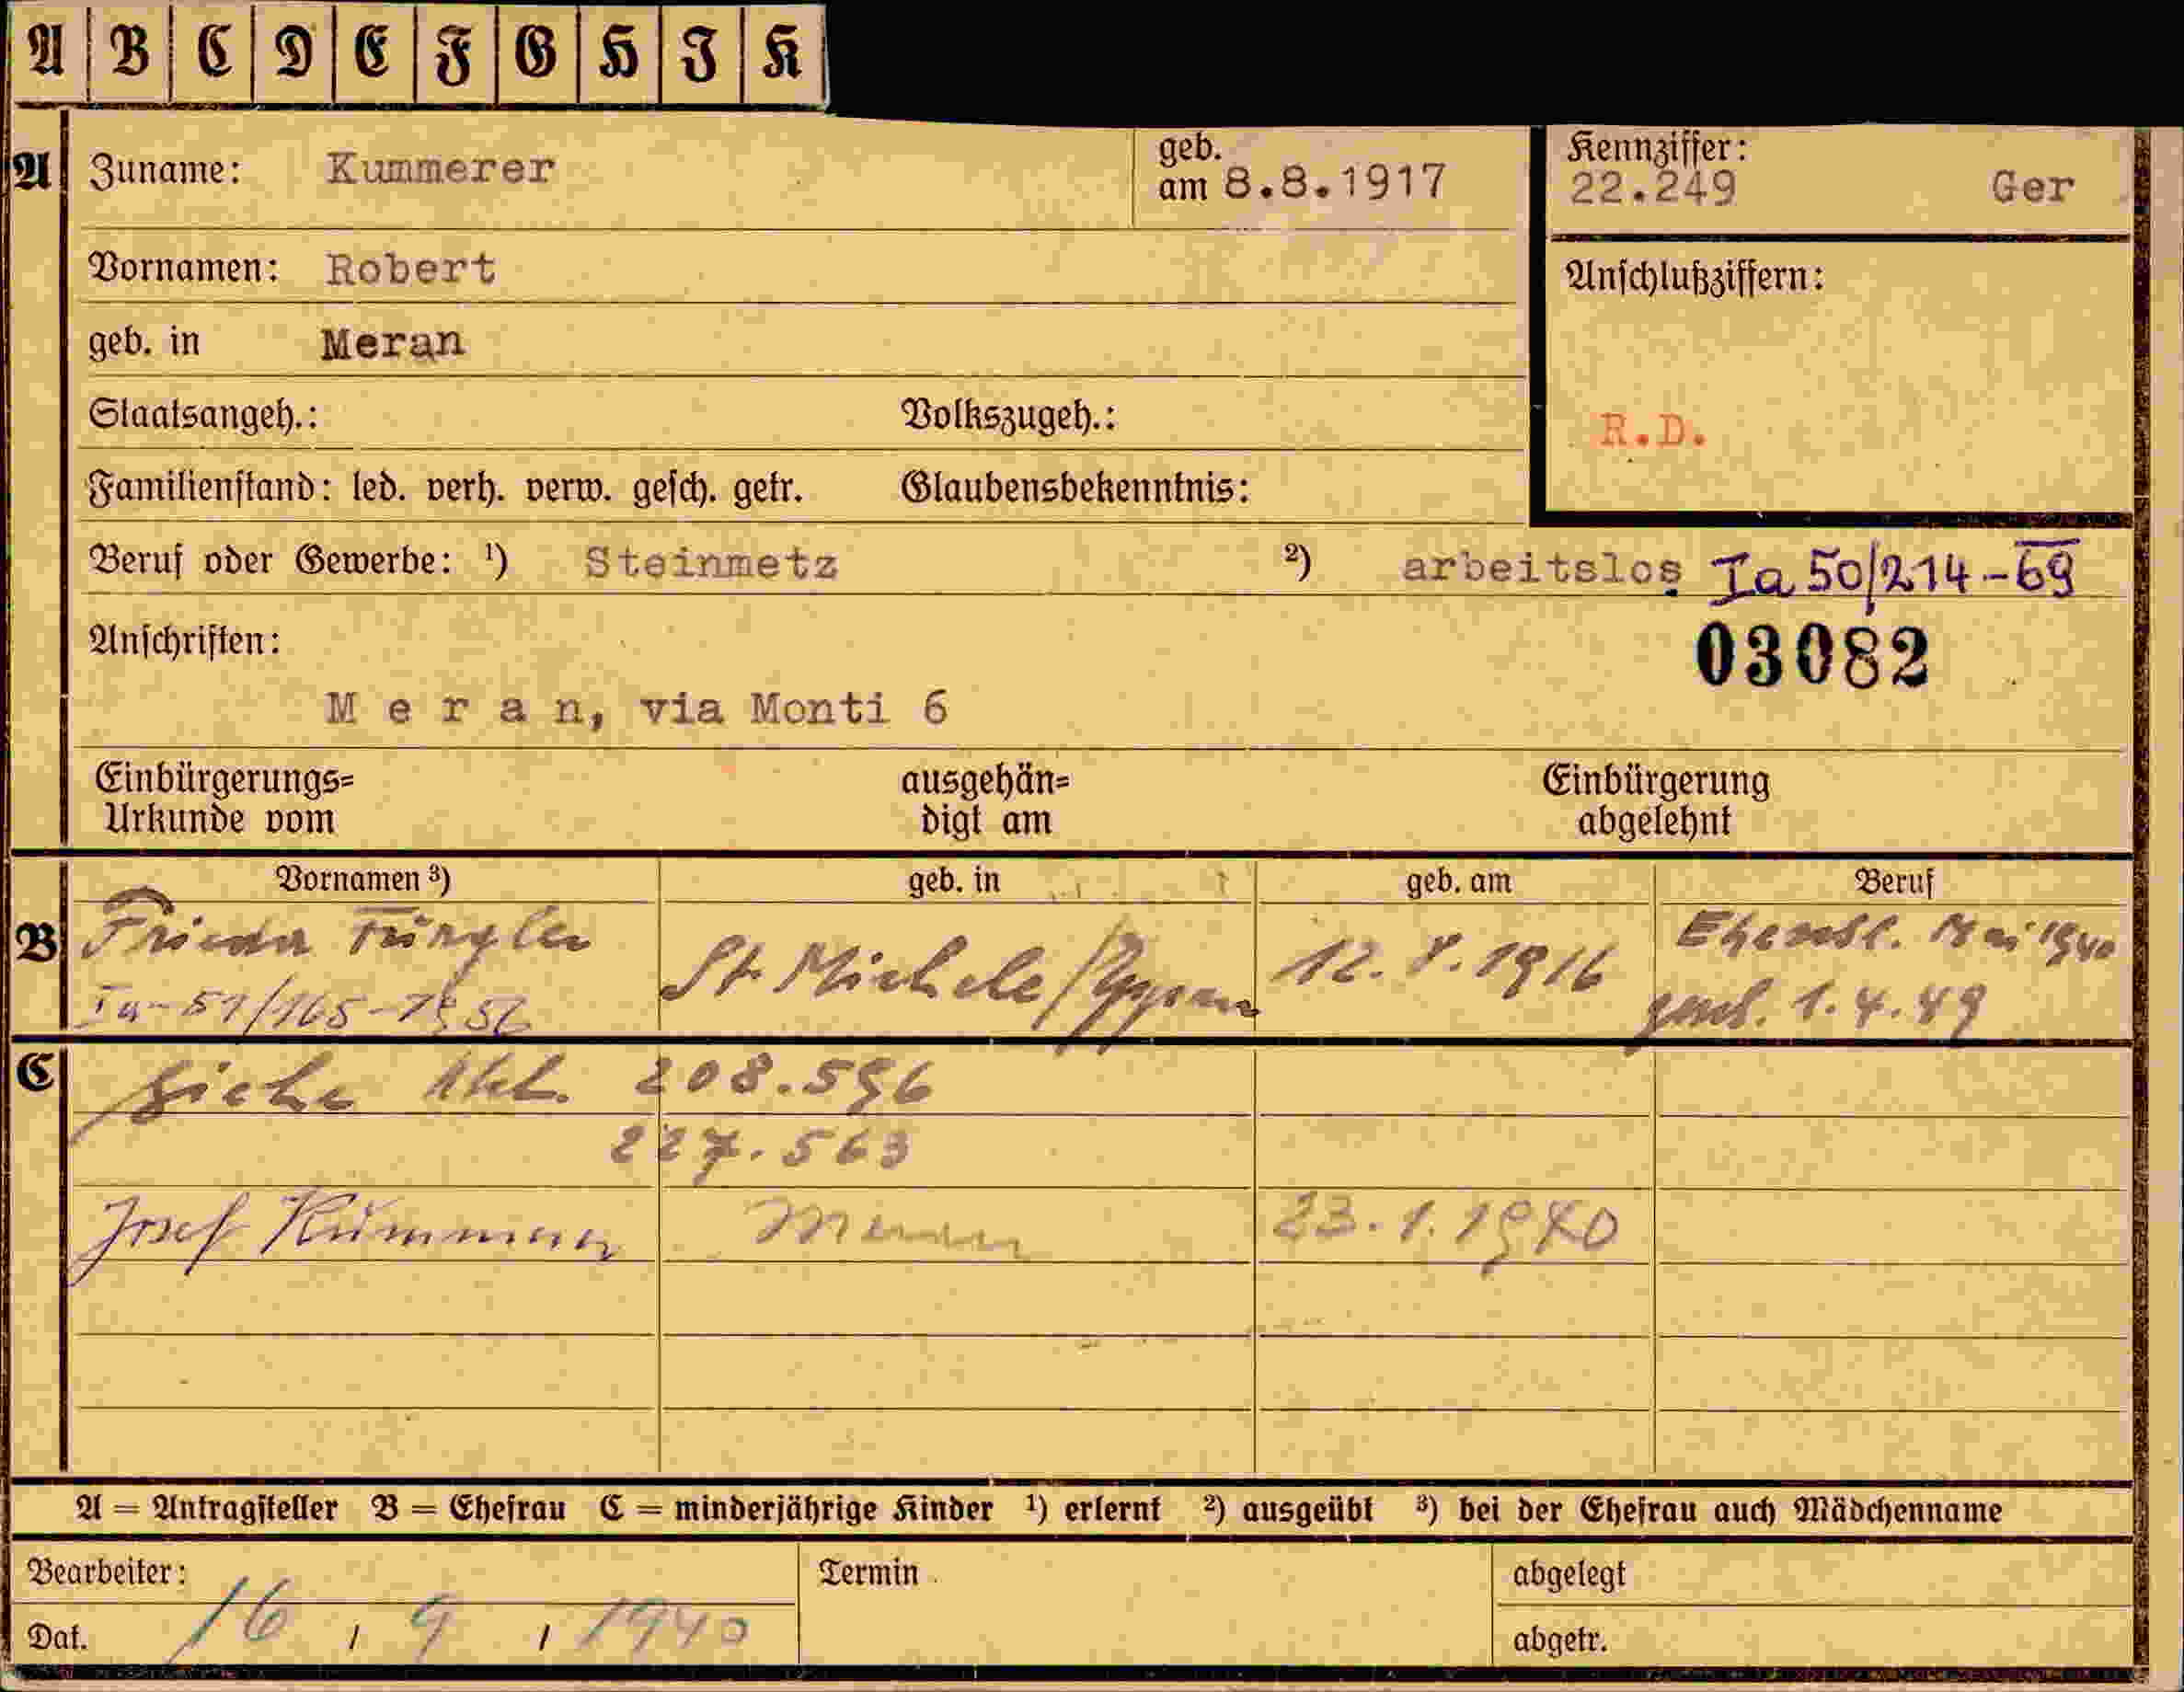 A B C D E F G H I K
A Zuname: Kummerer geb. am 8.8.1917 Kennziffer: 22.249 Ger
Vornamen: Robert
Anschlußziffern:
geb. in Meran
Staatsangeh.: Volkszugeh.:
R.D.
Familienstand: led. verh. verw. gesch. getr. Glaubensbekenntnis:
Beruf oder Gewerbe: ¹) Steinmetz ²) arbeitslos Ia 50/214-69
Anschriften:
03082
Meran, via Monti 6
Einbürgerungs= ausgehän= Einbürgerung
Urkunde vom digt am abgelehnt
Vornamen ³) geb. in geb. am Beruf
B Frieda St. Michele/ 12. 8. 1916 Mai 1940
Ia-51/165- 1.4.49
C siehe 208.596
227.563
Josef 23.1.1940
A = Antragsteller B = Ehefrau C = minderjährige Kinder ¹) erlernt ²) ausgeübt ³) bei der Ehefrau auch Mädchenname
Bearbeiter: Termin abgelegt
Dat. 16 / 9 / 1940 abgetr.